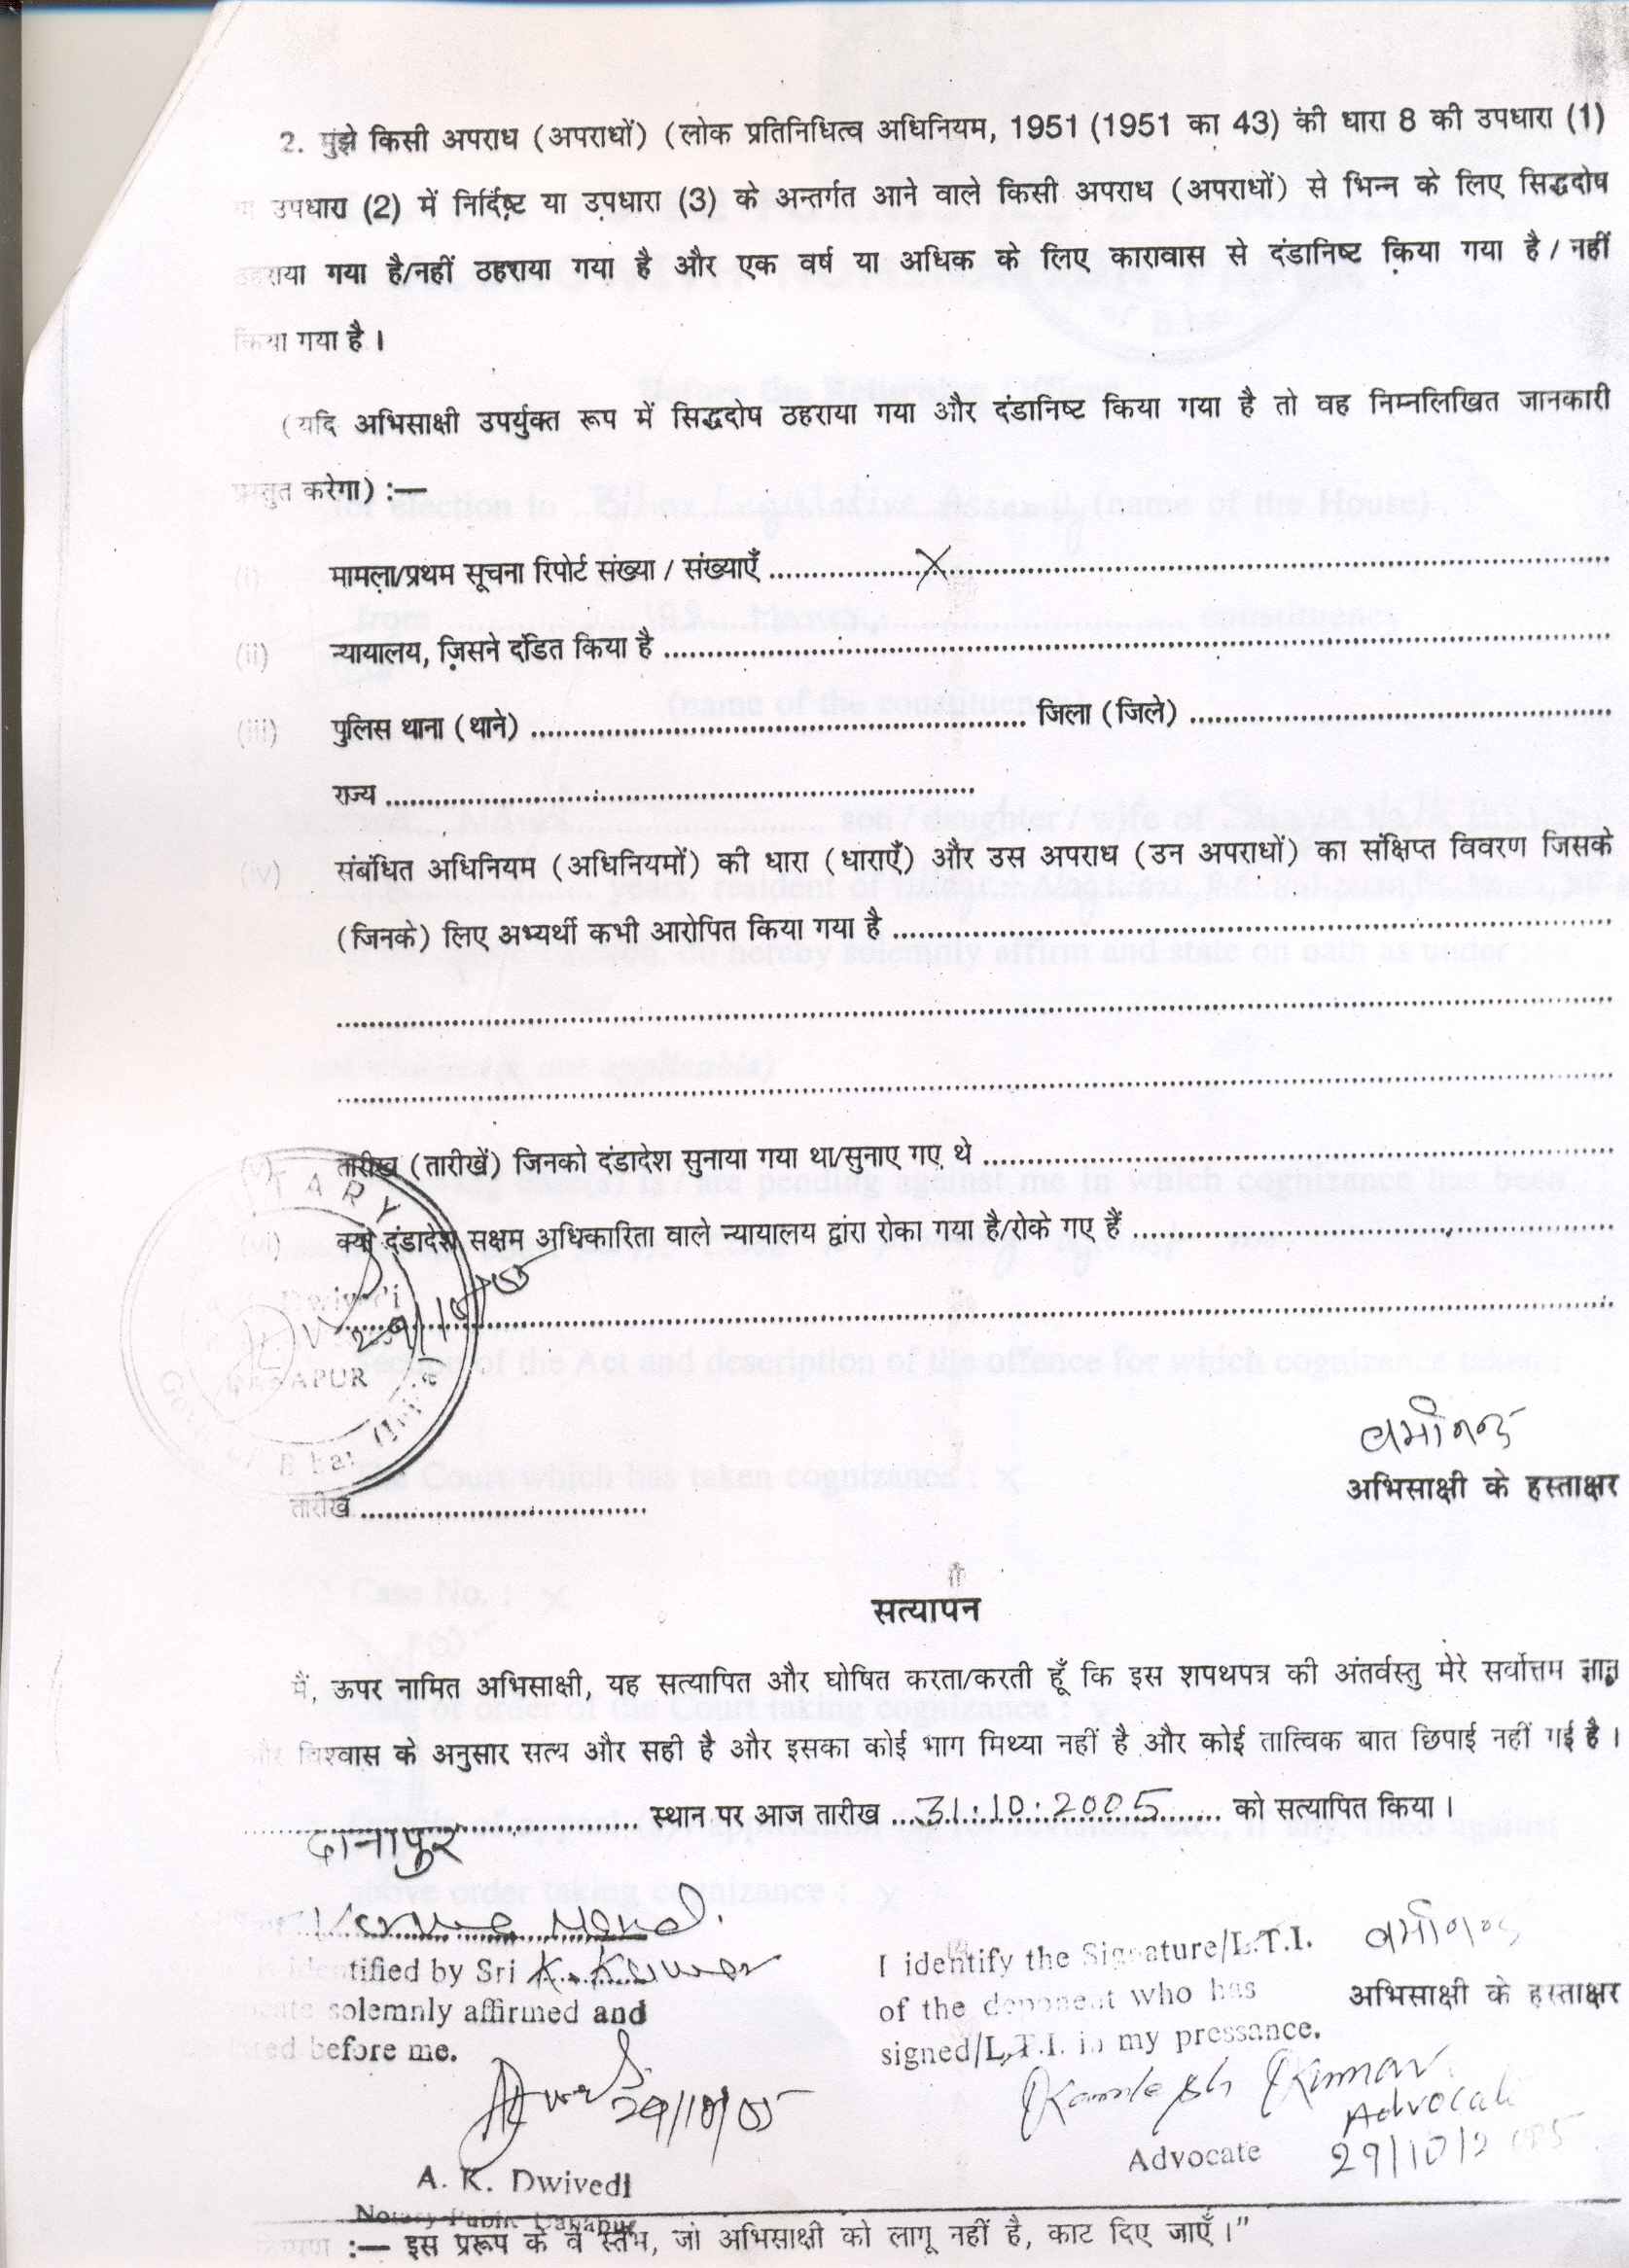 2. मुझे किसी अपराध (अपराधों) (लोक प्रतिनिधित्व अधिनियम, 1951 (1951 का 43) की धारा 8 की उपधारा (1)
या उपधारा (2) में निर्दिष्ट या उपधारा (3) के अन्तर्गत आने वाले किसी अपराध (अपराधों) से भिन्न के लिए सिद्धदोष
ठहराया गया है/नहीं ठहराया गया है और एक वर्ष या अधिक के लिए कारावास से दंडानिष्ट किया गया है / नहीं
किया गया है ।
(यदि अभिसाक्षी उपर्युक्त रूप में सिद्धदोष ठहराया गया और दंडानिष्ट किया गया है तो वह निम्नलिखित जानकारी
प्रस्तुत करेगा) :—
(i) मामला/प्रथम सूचना रिपोर्ट संख्या / संख्याएँ .................X.................
(ii) न्यायालय, जिसने दंडित किया है .................
(iii) पुलिस थाना (थाने) ................. जिला (जिले) .................
राज्य .................
(iv) संबंधित अधिनियम (अधिनियमों) की धारा (धाराएँ) और उस अपराध (उन अपराधों) का संक्षिप्त विवरण जिसके
(जिनके) लिए अभ्यर्थी कभी आरोपित किया गया है .................
(v) तारीख (तारीखें) जिनको दंडादेश सुनाया गया था/सुनाए गए थे .................
(vi) क्या दंडादेश सक्षम अधिकारिता वाले न्यायालय द्वारा रोका गया है/रोके गए हैं .................
TARY
Dwivedi
29/10/05
DANAPUR
Govt. of Bihar (India)
तारीख .................
अभिसाक्षी के हस्ताक्षर
सत्यापन
मैं, ऊपर नामित अभिसाक्षी, यह सत्यापित और घोषित करता/करती हूँ कि इस शपथपत्र की अंतर्वस्तु मेरे सर्वोत्तम ज्ञान
और विश्वास के अनुसार सत्य और सही है और इसका कोई भाग मिथ्या नहीं है और कोई तात्विक बात छिपाई नहीं गई है ।
दानापुर ................. स्थान पर आज तारीख ...31:10:2005... को सत्यापित किया ।
identified by Sri K. Kumar
solemnly affirmed and
before me.
29/10/05
A. K. Dwivedi
Notary Public Danapur
I identify the Signature/L.T.I.
of the deponent who has
signed/L.T.I. in my pressance.
अभिसाक्षी के हस्ताक्षर
Kamlesh Kumar
Advocate
Advocate 29/10/2005
:— इस प्ररूप के वे स्तंभ, जो अभिसाक्षी को लागू नहीं है, काट दिए जाएँ ।”